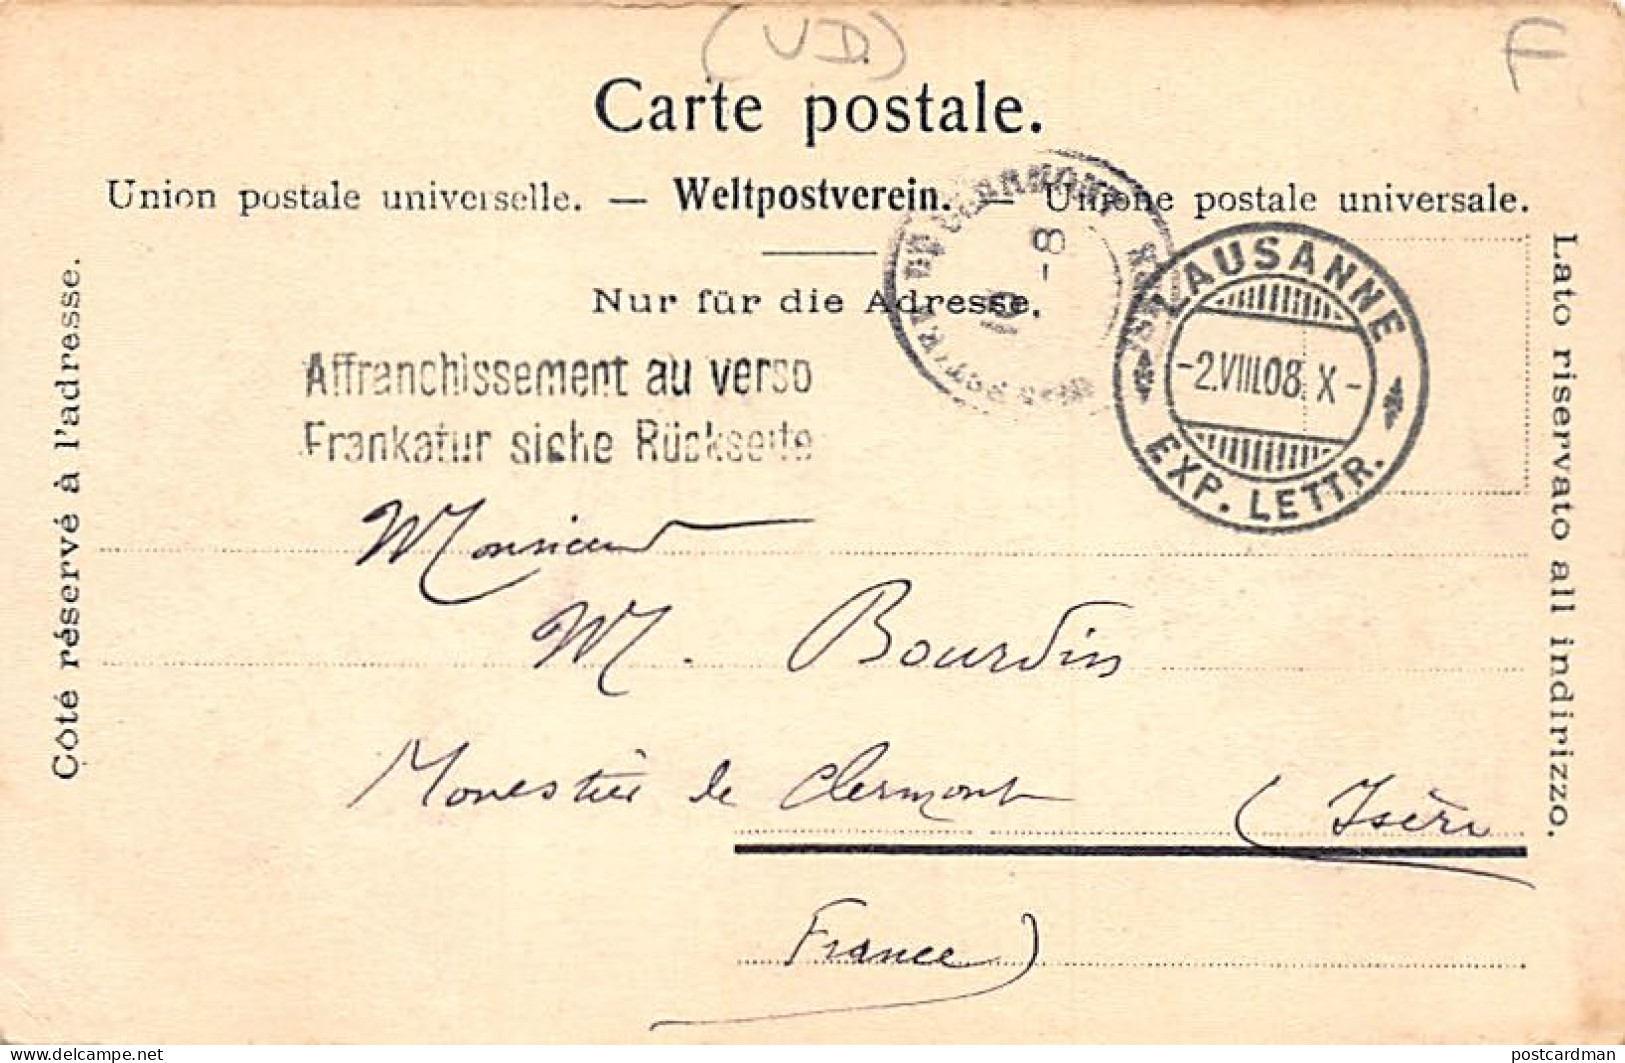 (VD)
Carte postale.
Union postale universelle. — Weltpostverein. — Unione postale universale.
Nur für die Adresse.
Côté réservé à l'adresse.
Lato riservato all indirizzo.
Affranchissement au verso
Frankatur siehe Rückseite
LAUSANNE
-2.VIII.08. X-
EXP. LETTR.
Monsieur
M. Bourdin
Monestier de Clermont (Isère
France)
delcampe.net
postcardman